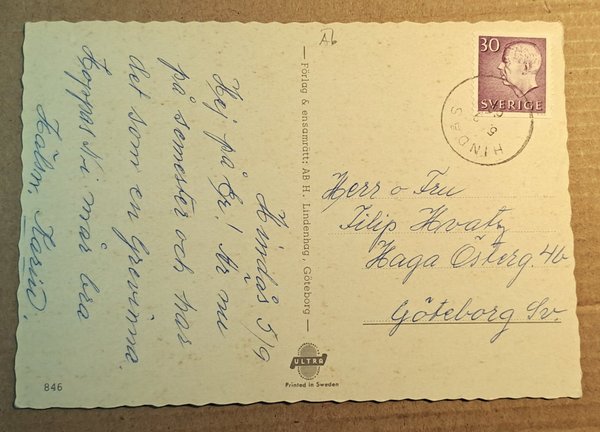 Hindås 5/9
Hej på Er! Är nu
på semester och har
det som en Grevinna.
Hoppas Ni mår bra
Hälsn. Karin.
Ab
— Förlag & ensamrätt: AB H. Lindenhag, Göteborg —
ULTRA
Printed in Sweden
846
30
SVERIGE
HINDÅS
Herr o Fru
Filip Hvatz
Haga Österg. 4b
Göteborg Sv.